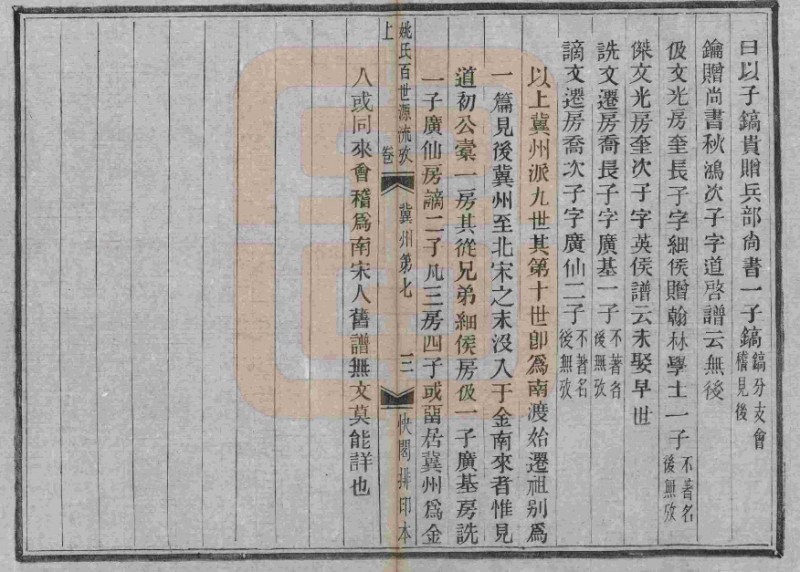 曰以子鎬貴贈兵部尚書一子鎬鎬分支會稽見後
鑰贈尚書秋鴻次子字道啓譜云無後
伋文光房奎長子字細侯贈翰林學士一子不著名後無攷
傑文光房奎次子字英侯譜云未娶早世
詵文遷房喬長子字廣基一子不著名後無攷
謫文遷房喬次子字廣仙二子不著名後無攷
以上冀州派九世其第十世卽爲南渡始遷祖别爲
一篇見後冀州至北宋之末沒入于金南來者惟見
道初公橐一房其從兄弟細侯房伋一子廣基房詵
一子廣仙房謫二子凡三房四子或畱居冀州爲金
姚氏百世源流攷 卷上 冀州第七 三 快閣排印本
人或同來會稽爲南宋人舊譜無文莫能詳也